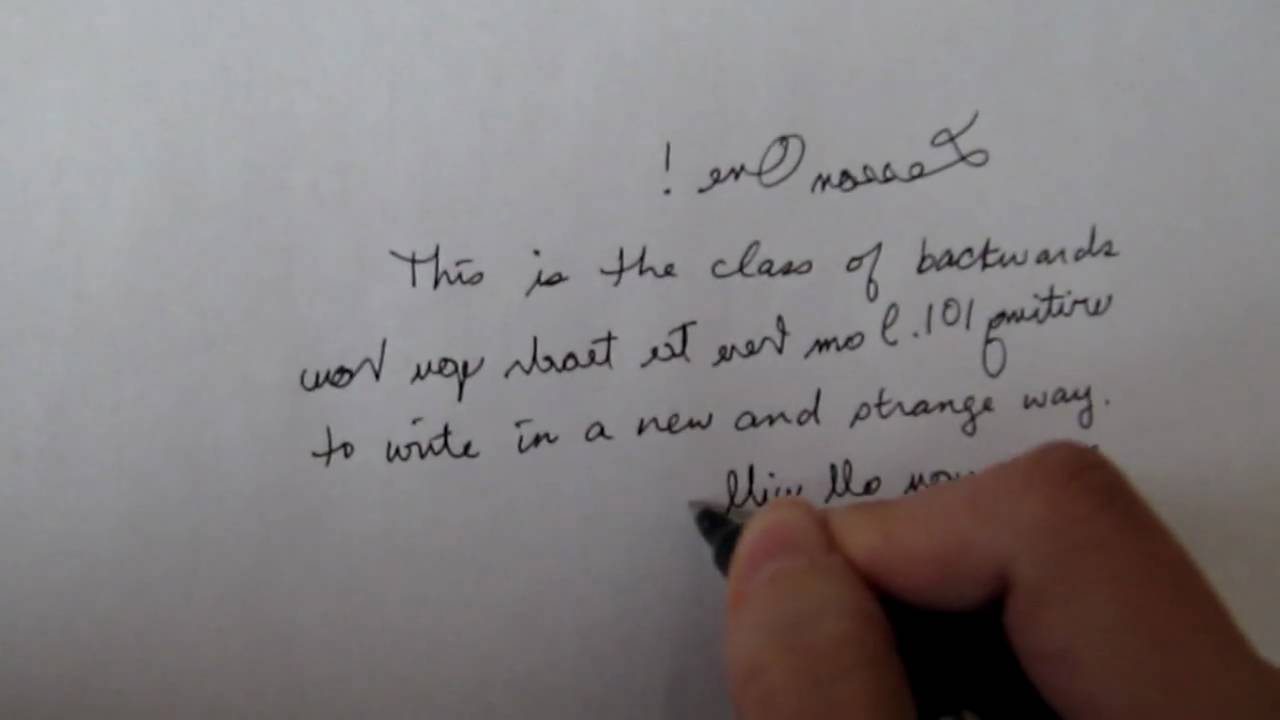 Lesson One !
This is the class of backwards
writing 101. I am here to teach you how
to write in a new and strange way.
you all will